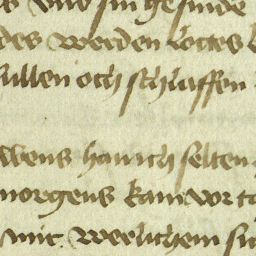 s vnd sin gesinde
des werden lottes
sullen och schlaffen
bens han ich selten
morgens kam vor ta
mit werlichem si